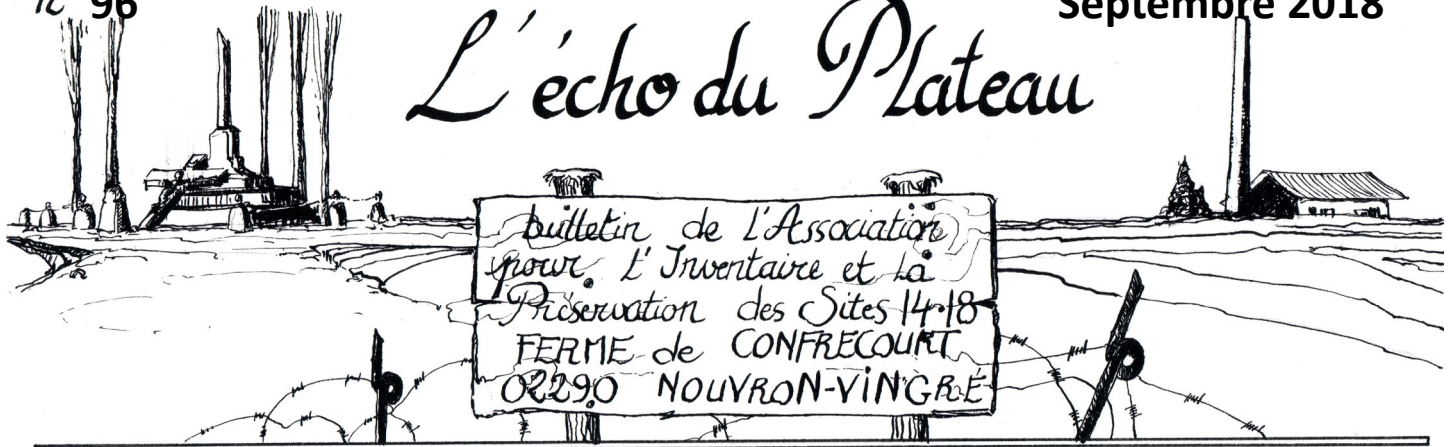 n° 96
Septembre 2018
L'écho du Plateau
bulletin de l'Association
pour l'Inventaire et la
Préservation des Sites 14-18
FERME de CONFRECOURT
02290 NOUVRON-VINGRÉ